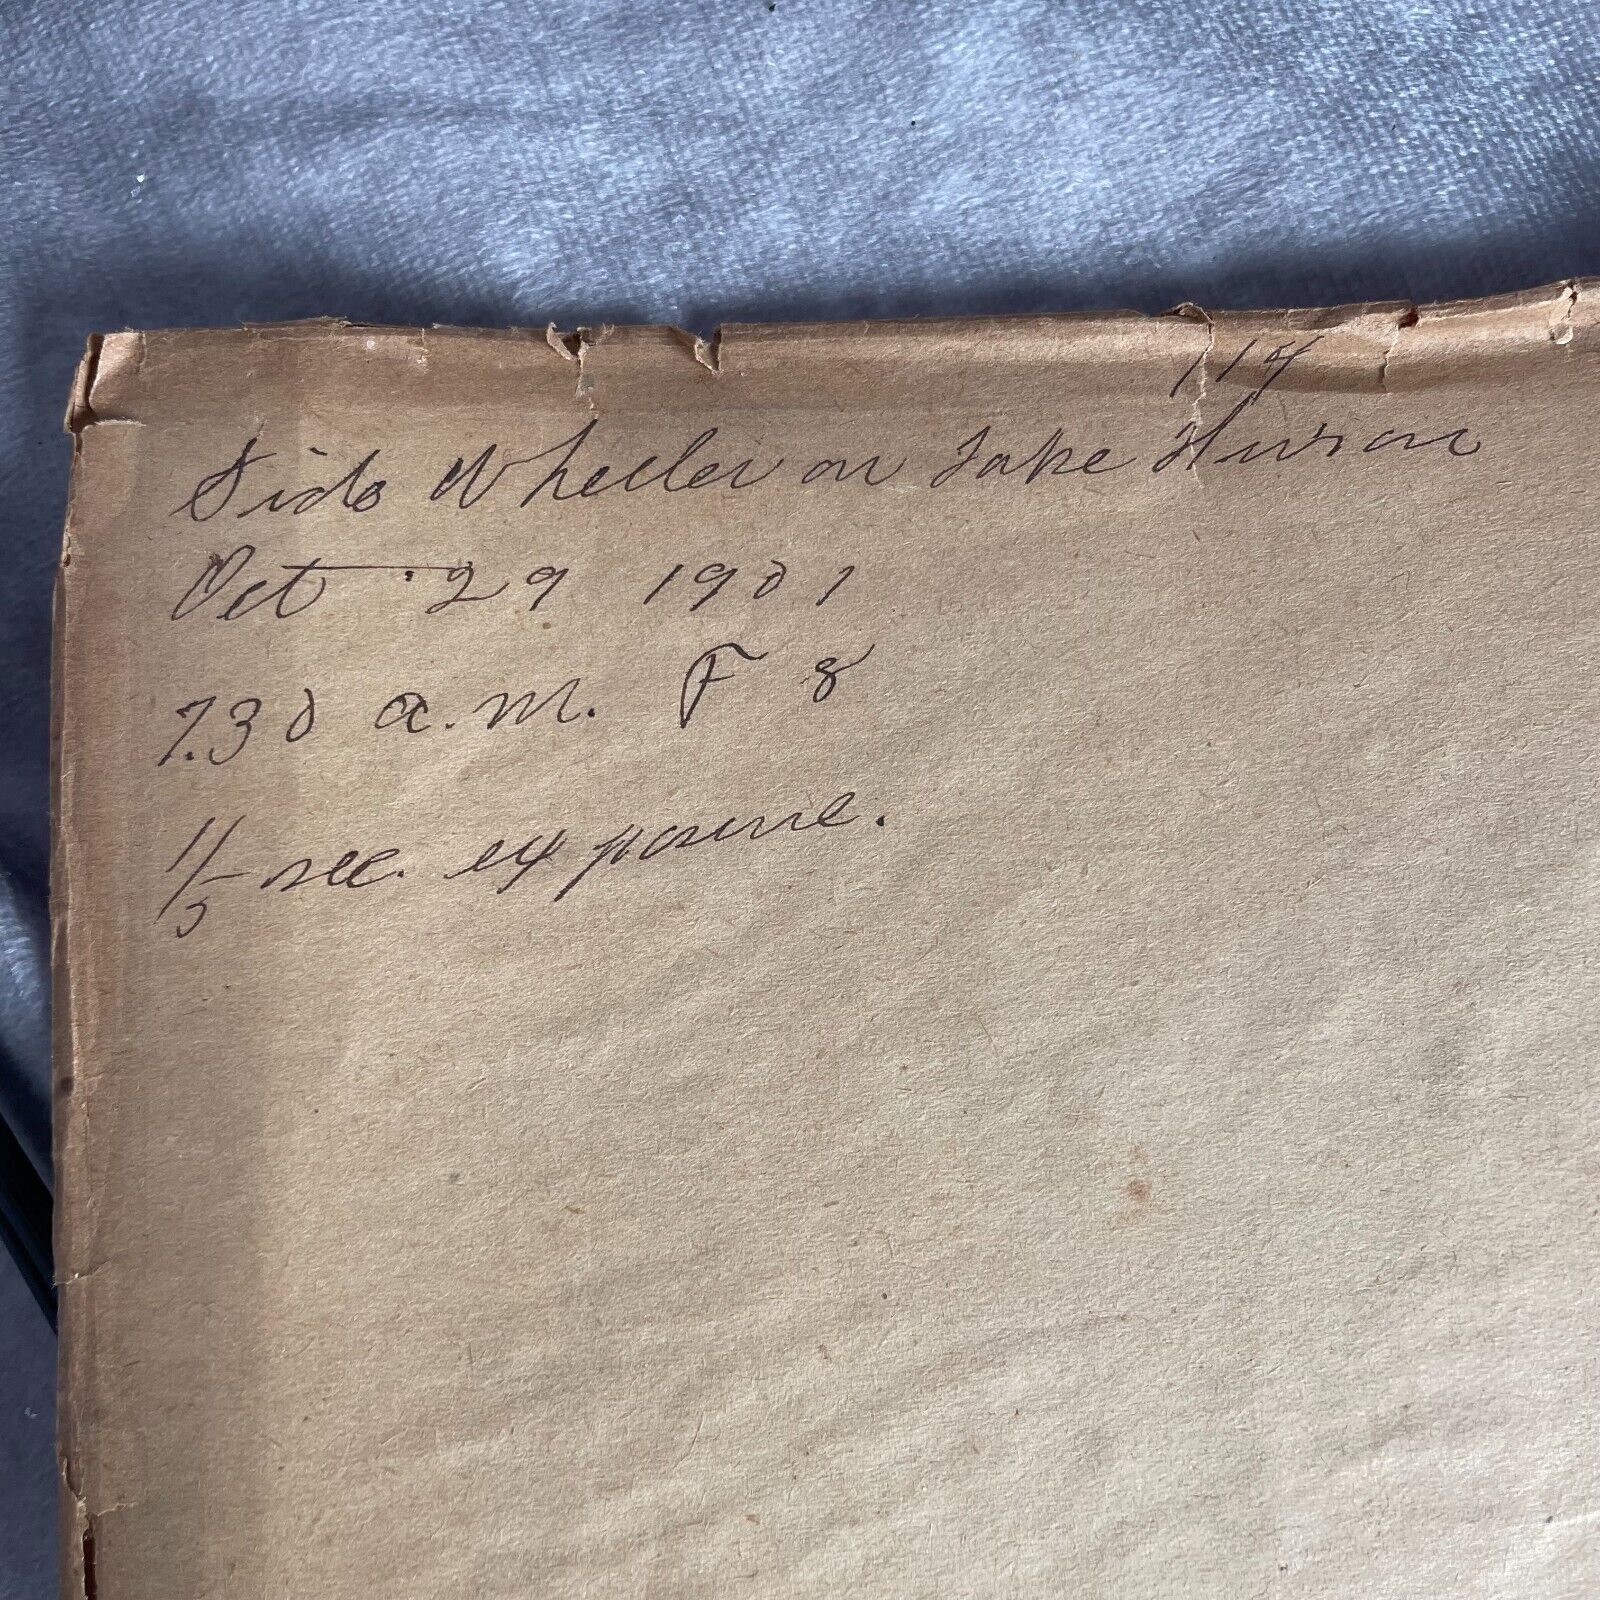 114
Side Wheeler on Lake Huron
Oct 29 1901
7.30 a.m. F 8
1/5 sec. exposure.